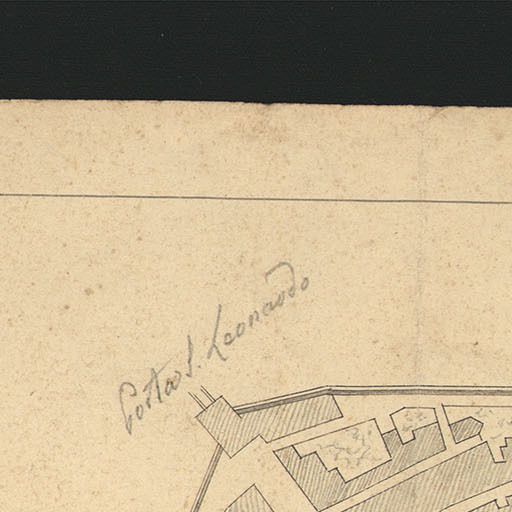 Porta S. Leonardo